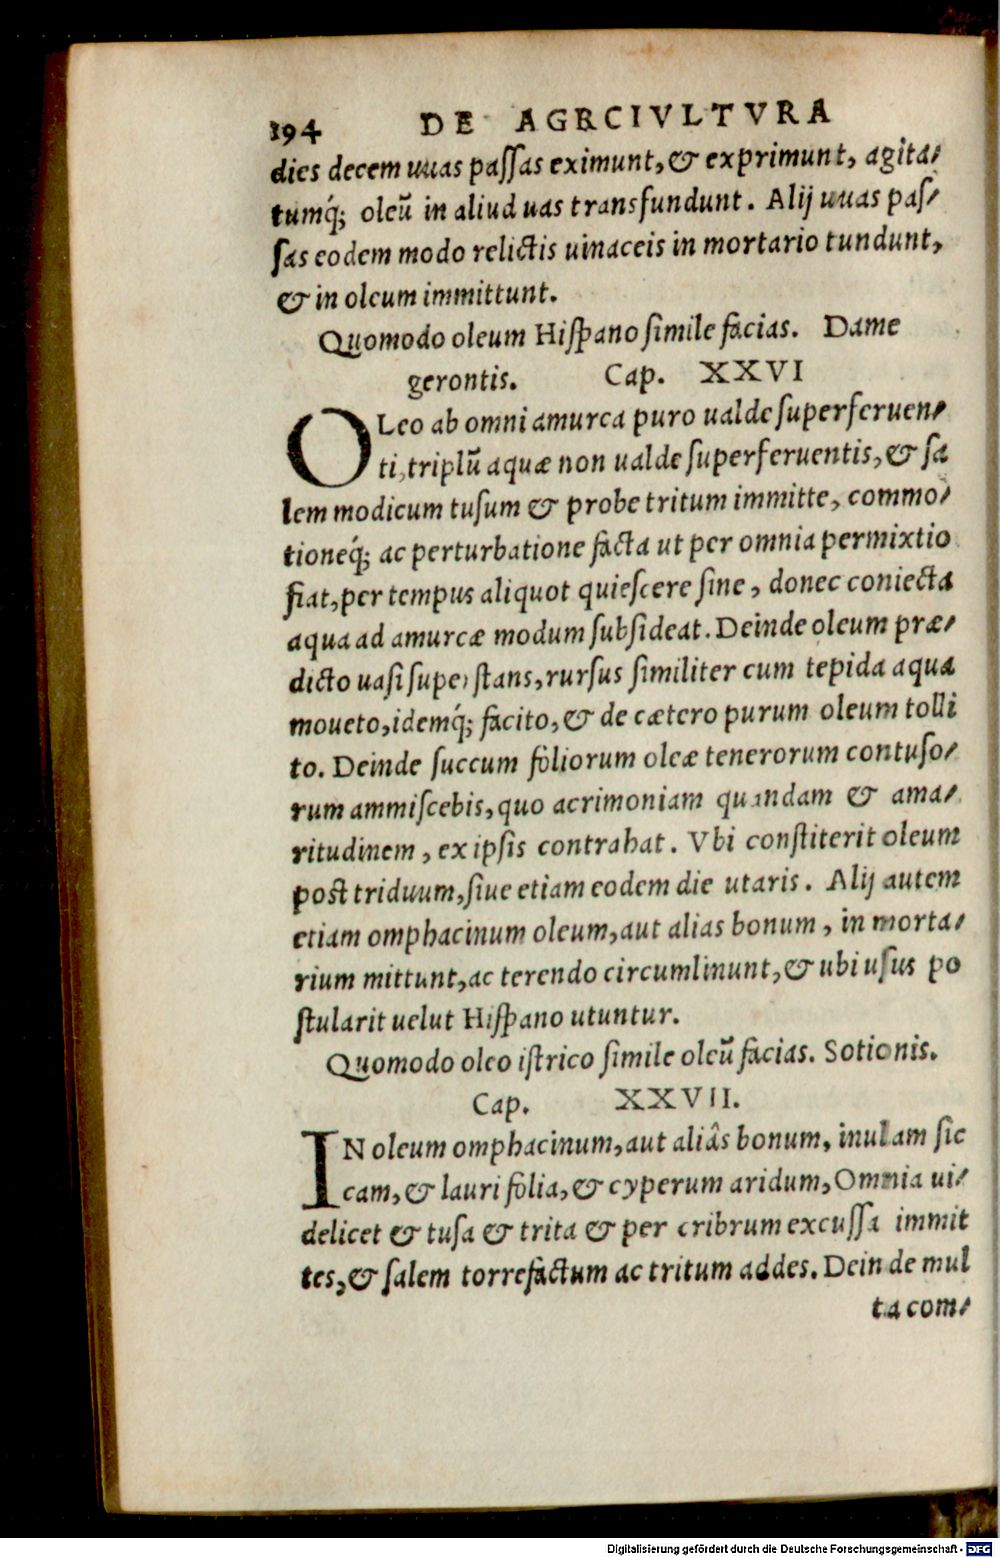 194 DE AGRCIVLTVRA
dies decem uuas passas eximunt, & exprimunt, agita⸗
tumq́; oleū in aliud uas transfundunt. Alij uuas pas⸗
sas eodem modo relictis uinaceis in mortario tundunt,
& in oleum immittunt.
Quomodo oleum Hispano simile facias. Dame
gerontis. Cap. XXVI
OLeo ab omni amurca puro ualde superferuen⸗
ti, triplū aquæ non ualde superferuentis, & sa
lem modicum tusum & probe tritum immitte, commo⸗
tioneq́; ac perturbatione facta ut per omnia permixtio
fiat, per tempus aliquot quiescere sine, donec coniecta
aqua ad amurcæ modum subsideat. Deinde oleum præ⸗
dicto uasi superstans, rursus similiter cum tepida aqua
moueto, idemq́; facito, & de cætero purum oleum tolli
to. Deinde succum foliorum oleæ tenerorum contuso⸗
rum ammiscebis, quo acrimoniam quandam & ama⸗
ritudinem, ex ipsis contrahat. Vbi constiterit oleum
post triduum, siue etiam eodem die utaris. Alij autem
etiam omphacinum oleum, aut alias bonum, in morta⸗
rium mittunt, ac terendo circumlinunt, & ubi usus po
stularit uelut Hispano utuntur.
Quomodo oleo istrico simile oleū facias. Sotionis.
Cap. XXVII.
IN oleum omphacinum, aut aliâs bonum, inulam sic
cam, & lauri folia, & cyperum aridum, Omnia ui⸗
delicet & tusa & trita & per cribrum excussa immit
tes, & salem torrefactum ac tritum addes. Dein de mul
ta com⸗
Digitalisierung gefördert durch die Deutsche Forschungsgemeinschaft - DFG